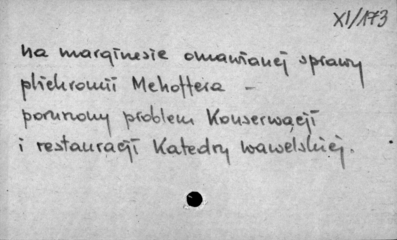 XI/173
na marginesie omawianej sprawy
plichromii Mehoffera –
poruszony problem Konserwacji
i restauracji Katedry wawelskiej.